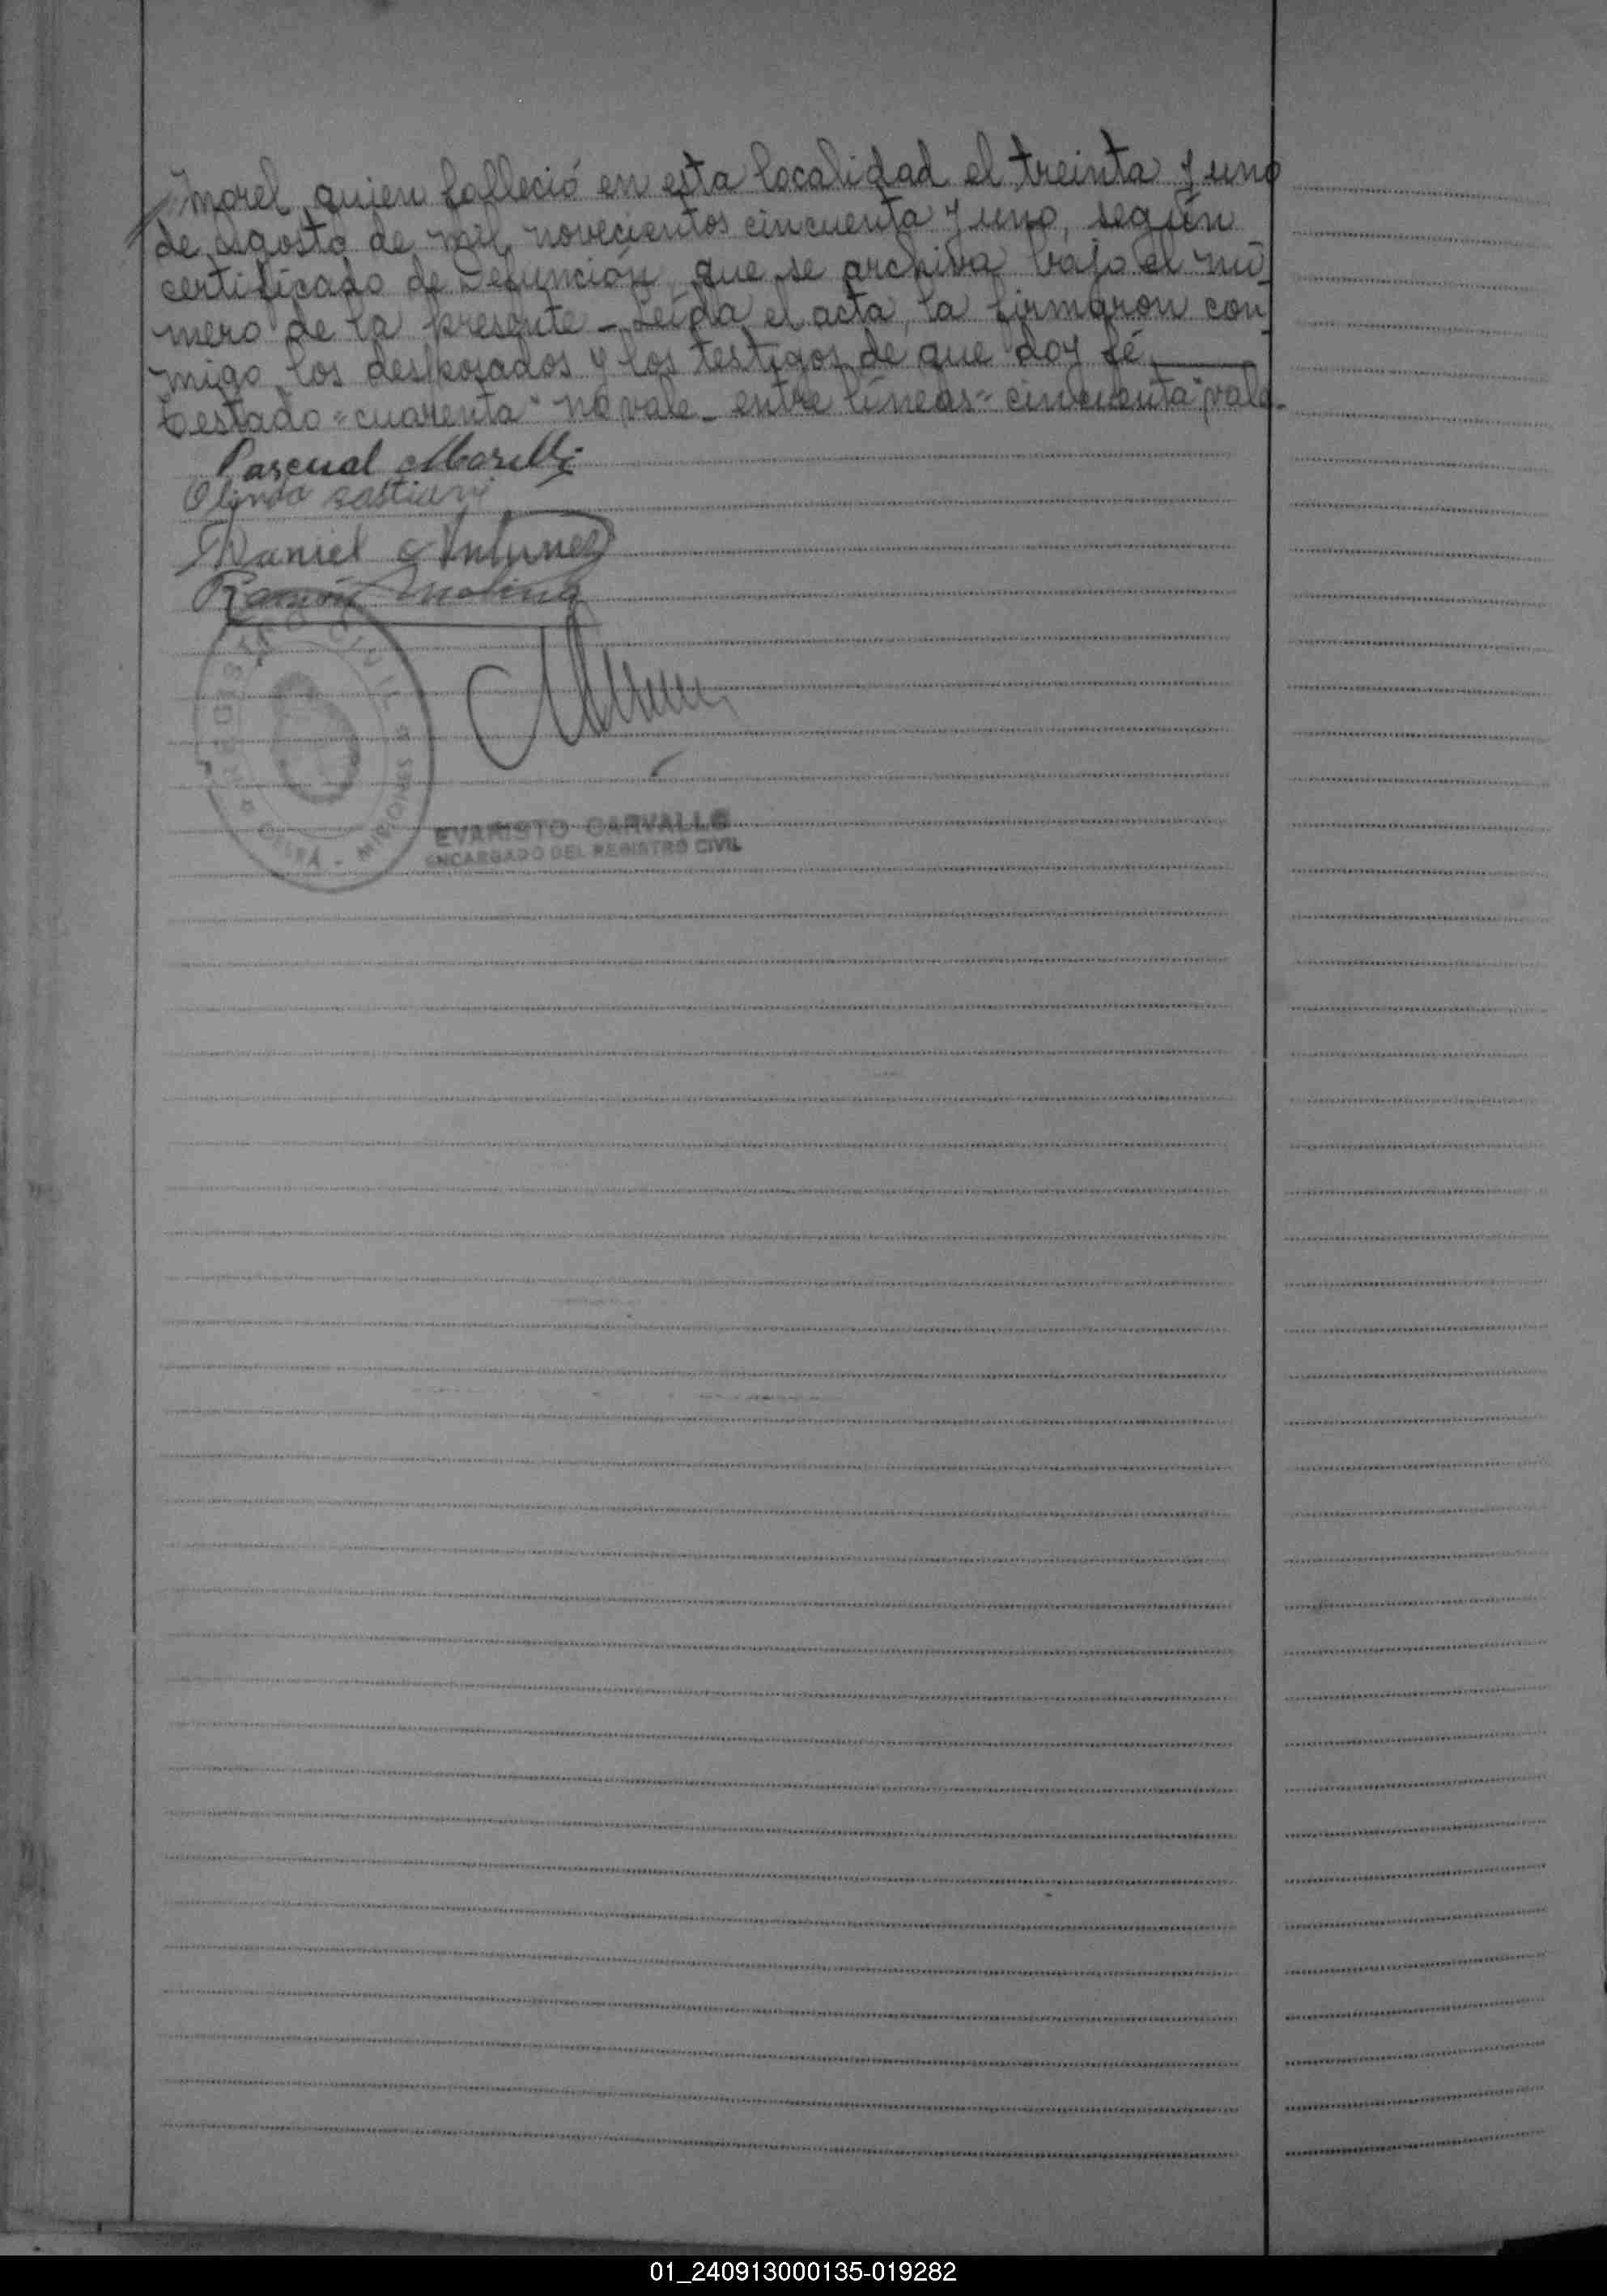 Morel, quien falleció en esta localidad el treinta y uno
de agosto de mil novecientos cincuenta y uno, según
certificado de Defunción, que se archiva bajo el nú
mero de la presente - Leída el acta, la firmaron con
migo los desposados y los testigos de que doy fé.
Testado "cuarenta" no vale - entre líneas "cincuenta" vale.
Pascual Morelli
Olinda
Daniel Antunez
Ramón Molina
REGISTRO CIVIL
MISIONES
EVARISTO CARVALLO
ENCARGADO DEL REGISTRO CIVIL
01_240913000135-019282